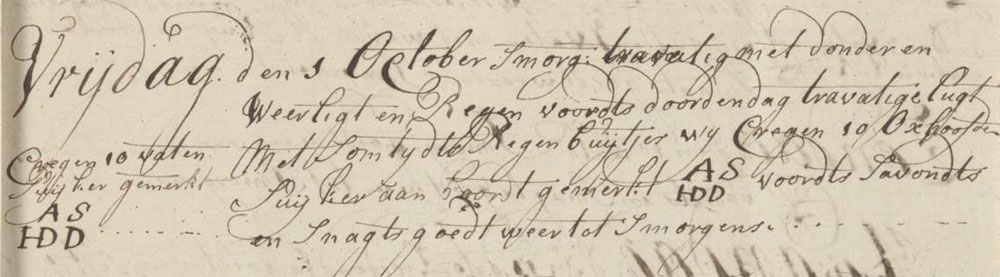 Vrijdag. den 1 October Smorg: travatig met donder en
Weerligt en Regen voordts doordendag travatige lugt
Met Somtydts Regen buijtjes wy Cregen 10 Oxhoofden
Suijker aan boordt gemerkt AS HDD voordts Savondts
en Snagts goedt weer tot Smorgens.
Cregen 10 vaten
Suijker gemerkt
AS
HDD